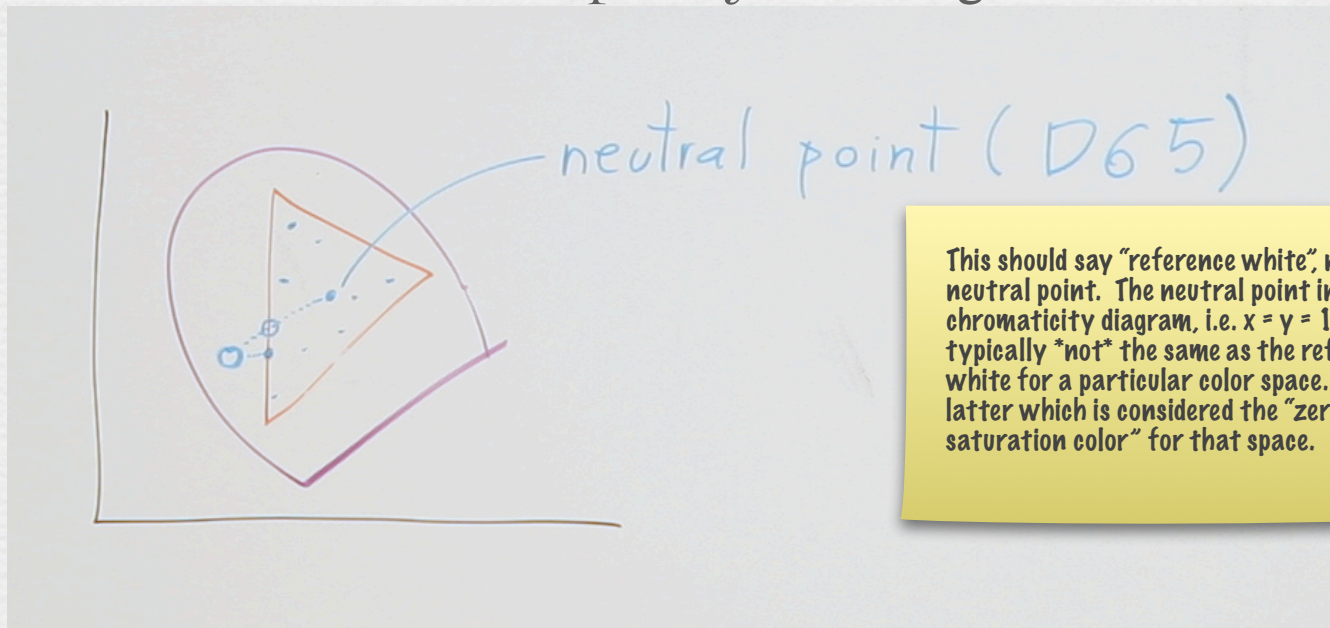 neutral point (D65)
This should say “reference white”,
neutral point. The neutral point
chromaticity diagram, i.e. x = y =
typically *not* the same as the
white for a particular color space.
latter which is considered the
saturation color” for that space.